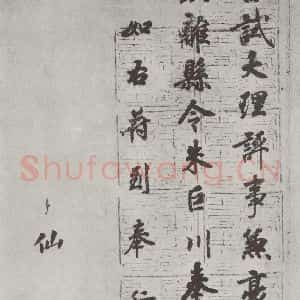 試大理評事兼豪
離縣令朱巨川奉
如右符到奉行
仙
Shufawang.CN